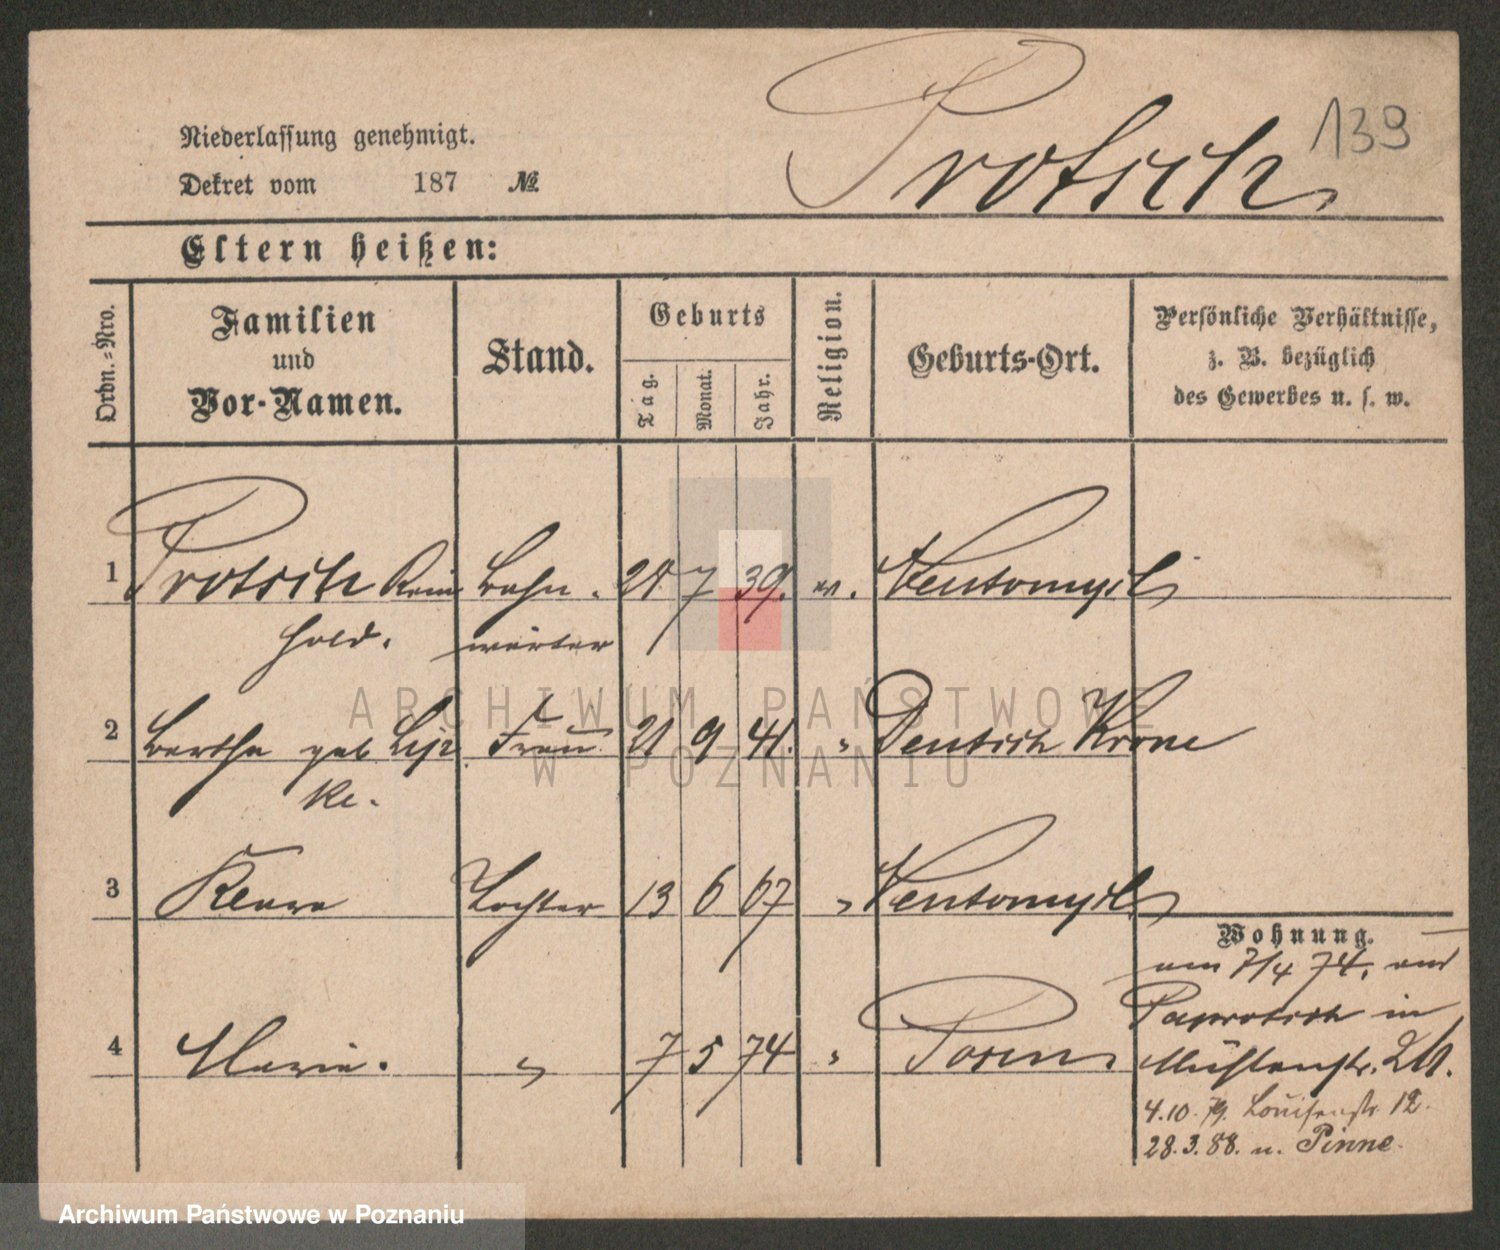 Protsch
139
Niederlassung genehmigt.
Dekret vom 187 №
Eltern heißen:
Ordn.-Nro.
Familien
und
Vor-Namen.
Stand.
Geburts
Tag.
Monat.
Jahr.
Religion.
Geburts-Ort.
Persönliche Verhältnisse,
z. B. bezüglich
des Gewerbes u. s. w.
1 Protsch Rein Bahn. 7 39. Neutomysl
hold. wärter
2 Bertha geb Frau 21 9 41. " Deutsch Krone
ke.
3 Tochter 13 6 67 " Neutomysl
Wohnung.
am 7/4 74.
4 Marie. " 7 5 74 " Posen
Paprotsch in
Mühlenstr.
4.10.79. Louisenstr. 12.
28.3.88. n. Pinne.
ARCHIWUM PAŃSTWOWE
W POZNANIU
Archiwum Państwowe w Poznaniu